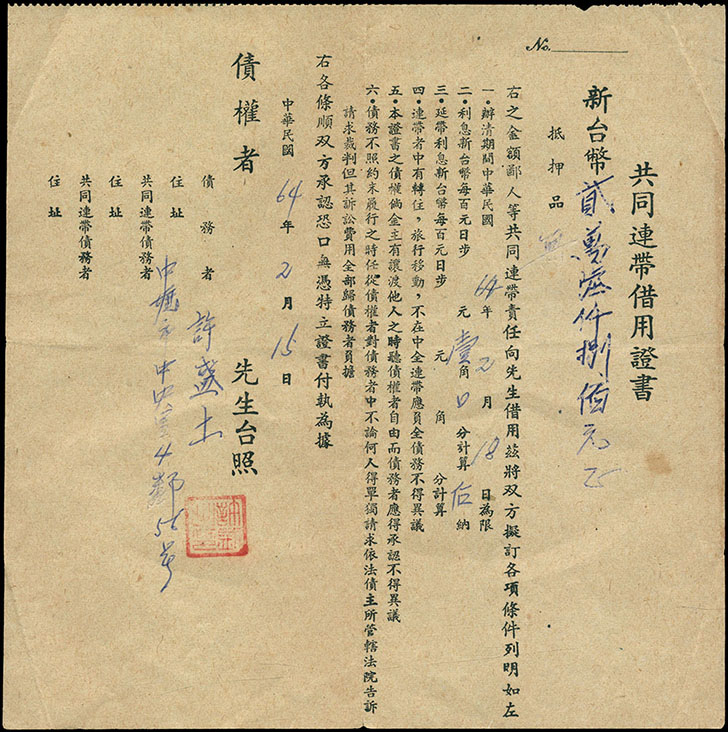 No.
共同連帶借用證書
新台幣貳萬壹仟捌佰元正
抵押品 無
右之金額鄙人等共同連帶責任向先生借用茲將双方擬訂各項條件列明如左
一・辦清期間中華民國 64 年 2 月 18 日為限
二・利息新台幣每百元日步 元壹角0分計算后納
三・延帶利息新台幣每百元日步 元 角 分計算
四・連帶者中有轉住，旅行移動，不在中全連帶應員全債務不得異議
五・本證書之債權倘金主有讓渡他人之時聽債權者自由而債務者應得承認不得異議
六・債務不照約束履行之時任從債權者對債務者中不論何人得單獨請求依法債主所管轄法院告訴
請求裁判但其訴訟費用全部歸債務者員擔
右各條順双方承認恐口無憑特立證書付執為據
中華民國 64 年 2 月 15 日
債權者 先生台照
債務者 許盛土
住址 中壢市中央里4鄰56号
共同連帶債務者
住址
共同連帶債務者
住址